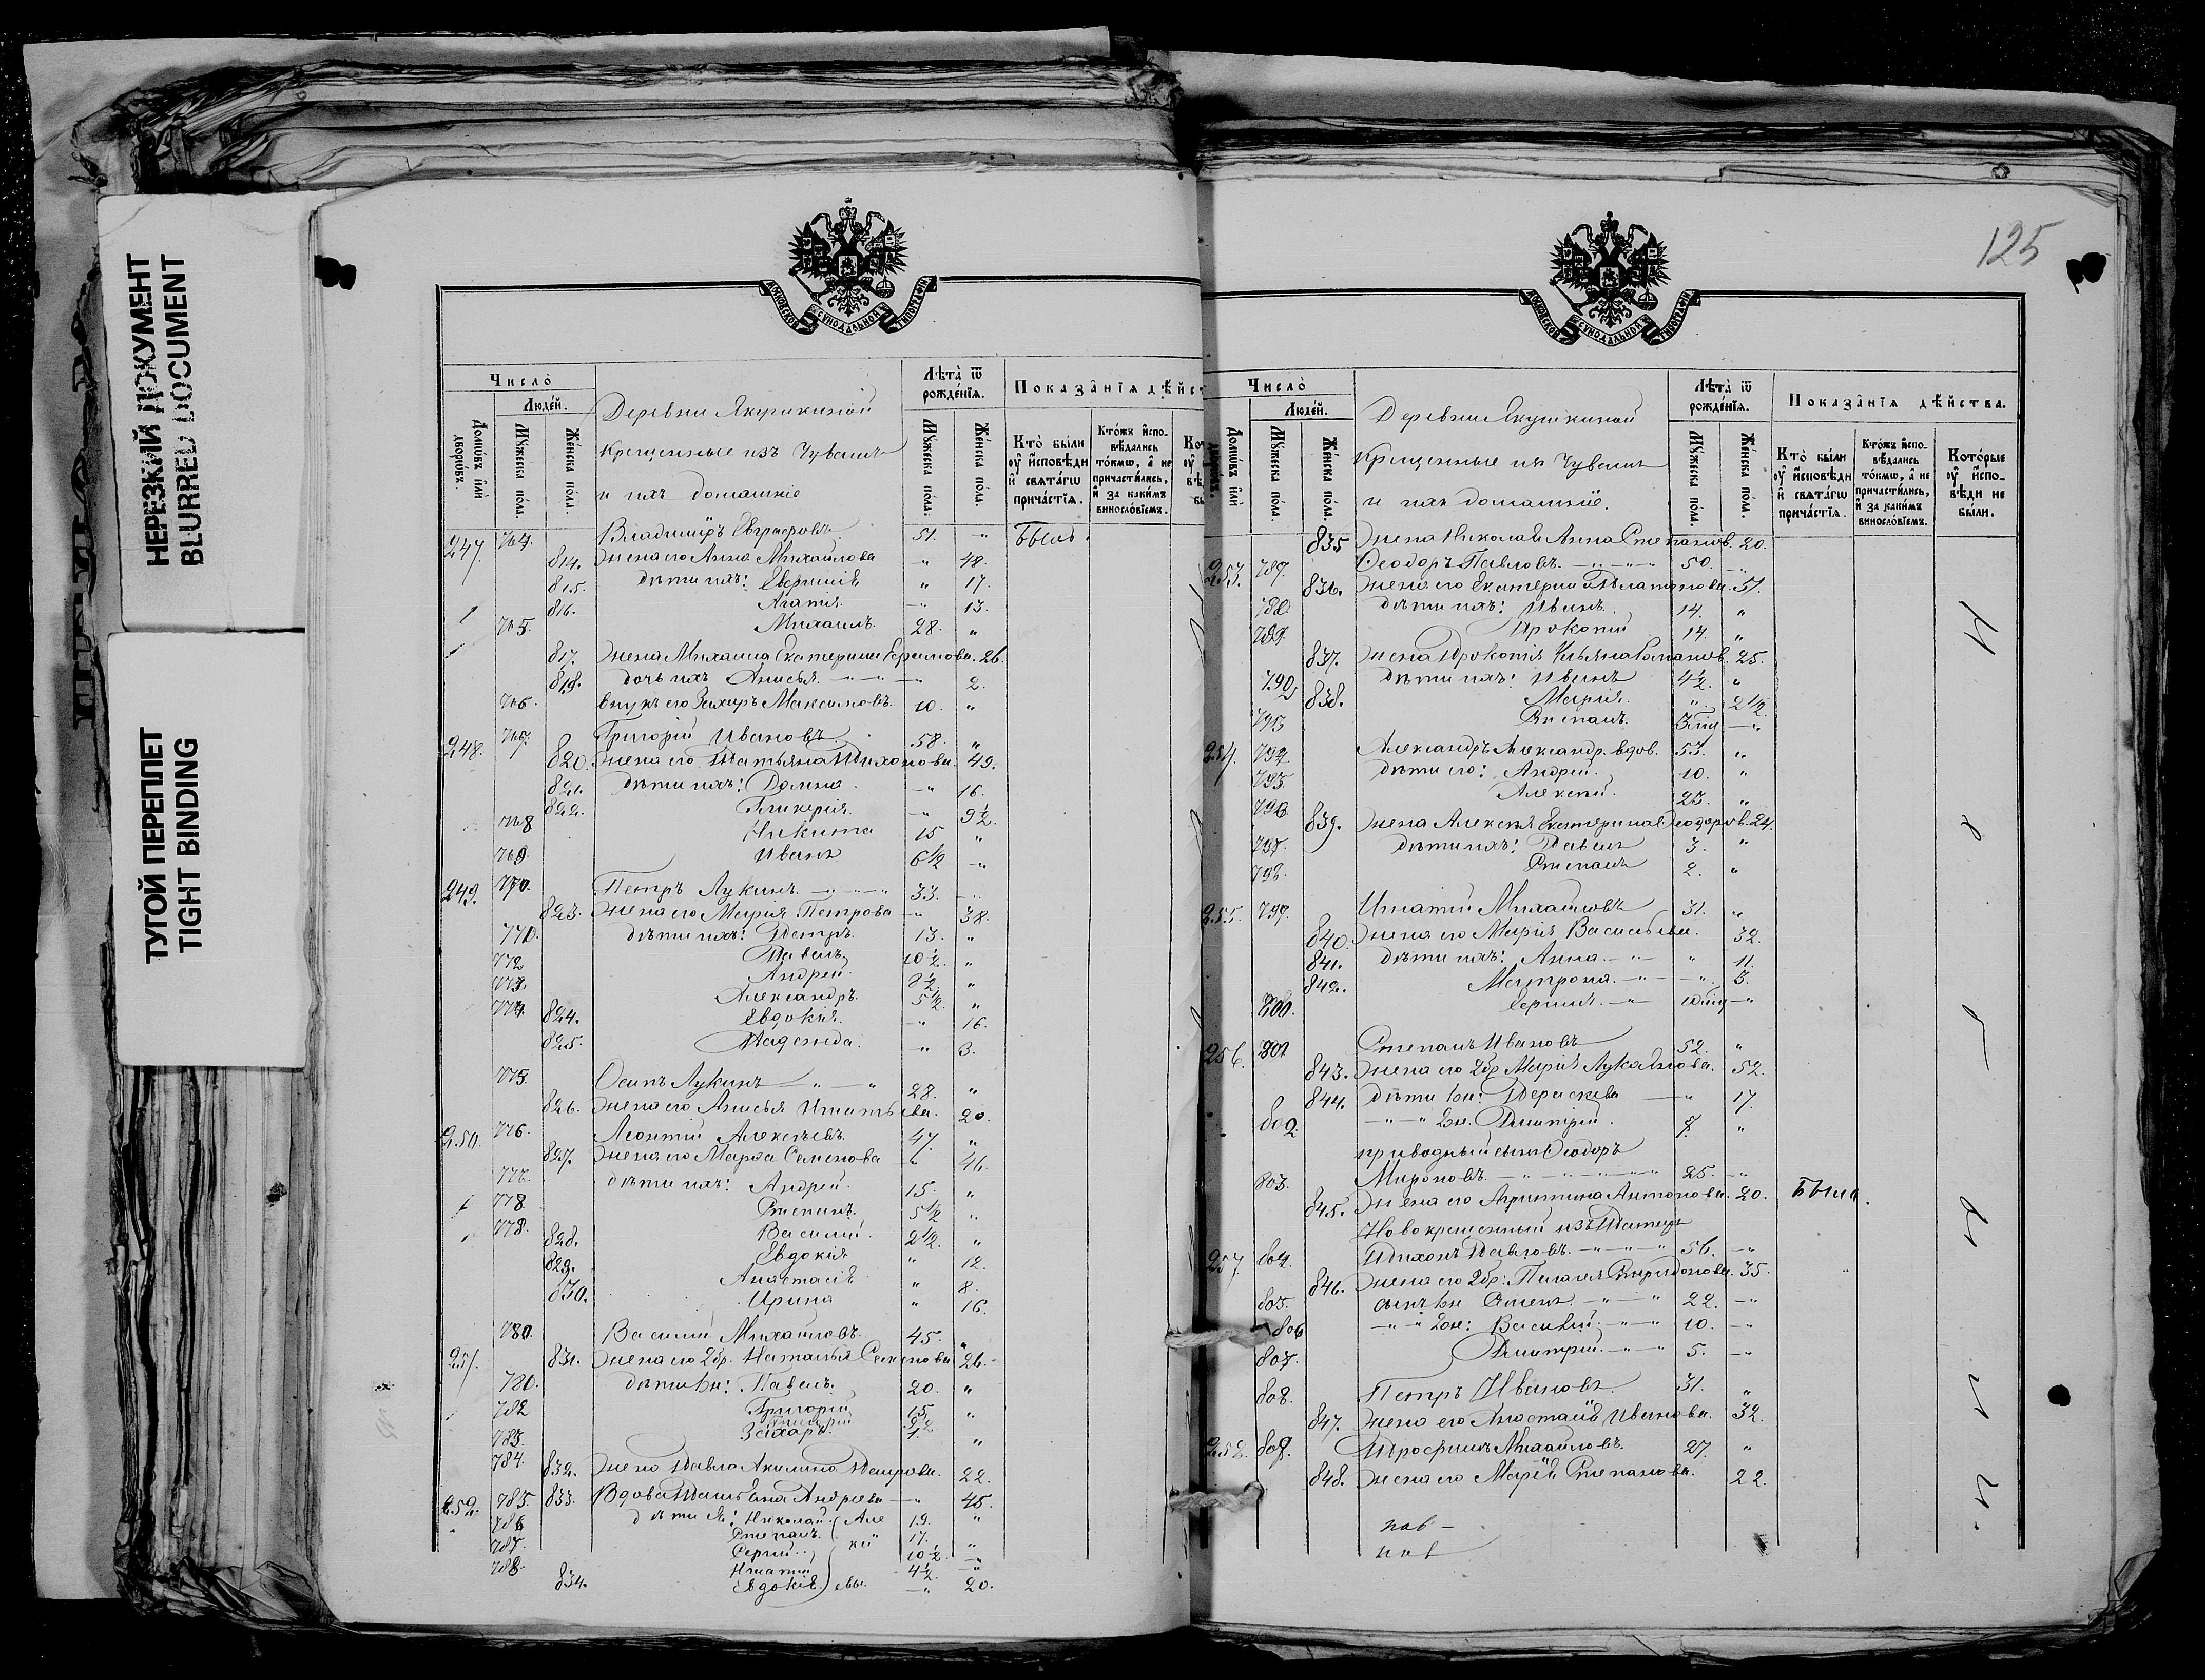 НЕРЕЗКИЙ ДОКУМЕНТ
BLURRED DOCUMENT
ТУГОЙ ПЕРЕПЛЕТ
TIGHT BINDING
МОСКОВСКОЙ СУНОДАЛЬНОЙ ТИПОГРАФІИ
Число̀
Люде́й.
Домѡ́въ и҆лѝ дворѡ́въ.
Мꙋ́жеска по́ла.
Же́нска по́ла.
Деревни Якушкиной
крещенные изъ Чувашъ
и ихъ домашніе
Лѣ́та ѿ рожде́нїѧ.
Мꙋ́жеска по́ла.
Же́нска по́ла.
Показа̑нїѧ дѣ́йст
Кто̀ бы́ли оу҆ и҆сповѣ́ди и҆ свѧта́гѡ прича́стїѧ.
Кто́жъ и҆сповѣ́дались то́кмѡ, а҆ не причасти́лись, и҆ за каки́мъ винословїемъ.
247. 764. Владиміръ Евграфовъ 51. Былъ.
814. Жена его Анна Михайлова 48.
815. дѣти ихъ: Евфимія 17.
816. Агафія 13.
765. Михаилъ. 28.
817. Жена Михаила Екатерина Ефимова. 26.
818. дочь ихъ Анисья 2.
766. внукъ его Захаръ Максимовъ. 10.
248. 767. Григорій Ивановъ. 58.
820. Жена его Татьяна Тихонова. 49.
821. дѣти ихъ: Домна 16.
822. Гликерія. 9½.
768 Никита 15
769. Иванъ 6½
249. 770. Петръ Лукинъ. 33.
823. Жена его Марія Петрова 38.
770. дѣти ихъ: Петръ. 13.
772 Павелъ 10½.
773. Андрей. 8½
774. Александръ. 5½.
824. Евдокія. 16.
825. Надежда. 3.
775. Осипъ Лукинъ 28.
826. Жена его Анисья Игнатьева. 20.
250. 776. Леонтій Алексѣевъ. 47.
827. Жена его Марѳа Семенова 46.
777. дѣти ихъ: Андрей. 15.
778 Степанъ. 5½
778. Василій. 2½.
828. Евдокія 12.
829. Анастасія 8.
830. Ирина 16.
780. Василій Михайловъ. 45.
251. 831. Жена его 2бр. Наталья Семенова 26.
780. дѣти ея: Павелъ. 20.
782 Григорій 15.
783. Захаръ. 1.
784. 832. Жена Павла Акилина Петрова. 22.
252. 785. 833. Вдова Татьяна Андреева 45.
786 дѣти ея: Николай 19.
787. Степанъ. 17.
Сергій 10½
788. Игнатій 4½
834. Евдокія 20.
125
МОСКОВСКОЙ СУНОДАЛЬНОЙ ТИПОГРАФІИ
Число̀
Люде́й.
Домѡ́въ и҆лѝ дворѡ́въ.
Мꙋ́жеска по́ла.
Же́нска по́ла.
Деревни Якушкиной
крещенные из Чувашъ
и ихъ домашніе.
Лѣ́та ѿ рожде́нїѧ.
Мꙋ́жеска по́ла.
Же́нска по́ла.
Показа̑нїѧ дѣ́йства.
Кто̀ бы́ли оу҆ и҆сповѣ́ди и҆ свѧта́гѡ прича́стїѧ.
Кто́жъ и҆сповѣ́дались то́кмѡ, а҆ не причасти́лись, и҆ за каки́мъ винословїемъ.
Кото́рые оу҆ и҆сповѣ́ди не бы́ли.
835 Жена Николая Анна Степанов. 20.
253. 789. Ѳеодоръ Павловъ. 50.
836. Жена его Екатерина Платонова. 51.
788. дѣти ихъ: Иванъ 14.
789 Прокопій 14.
837. Жена Прокопія Ульяна Романов. 25.
790. дѣти ихъ: Иванъ 4½.
838. Марія. 2½
Степанъ.
254. 792 Александръ Александр. вдов. 53.
793. дѣти его: Андрей. 10.
796 Алексѣй. 23.
839. Жена Алексѣя Екатерина Ѳеодоров. 24.
797. дѣти ихъ: Павелъ 3.
798. Степанъ 2.
255. 799. Игнатій Михайловъ 31.
840. Жена его Марія Васильева. 32.
841. дѣти ихъ: Анна 11.
842. Матрона. 3.
800. Ефимъ.
256. 801 Степанъ Ивановъ 52.
843. Жена его 2бр Марія Лукаянова. 52.
844. дѣти ея: Пераскева 17.
802. Дмитрій. 7.
приводный сынъ Ѳеодоръ
803. Мироновъ. 25.
845. Жена его Агриппина Антонова. 20. Была.
Новокрещенный изъ Татаръ
257. 804. Тихонъ Павловъ. 56.
846. Жена его 2бр: Пелагея Спиридонова. 35.
805. сынъ ея Семенъ. 22.
806 Василій. 10.
807. Дмитрій. 5.
808. Петръ Ивановъ. 31.
847. Жена его Анастасія Иванова. 32.
258. 809. Трофимъ Михайловъ. 27.
848. Жена его Марія Степанова. 22.